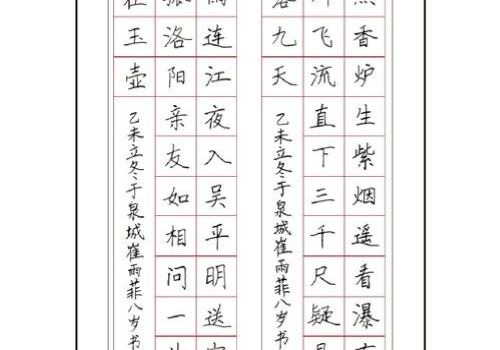 香炉生紫烟遥看瀑
飞流直下三千尺疑
九天
乙未立冬于泉城崔雨菲八岁书
连江夜入吴平明送
洛阳亲友如相问一
玉壶
乙未立冬于泉城崔雨菲八岁书